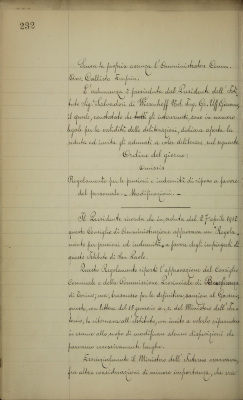 232
Scusa la propria assenza l'Amministratore Comm.
L'adunanza è presieduta dal Presidente dell'
il quale, constatato che tutti gli intervenuti sono in numero
legale per la validità delle deliberazioni, dichiara aperta la
seduta ed invita gli adunati a voler deliberare sul seguente
Ordine del giorno:
Omissis
Regolamento per le pensioni e indennità di riposo a favore
del personale. - Modificazioni. -
Il Presidente ricorda che in seduta del 27 aprile 1912
questo Consiglio di Amministrazione approvava un "Regola-
mento per pensioni ed indennità" a favore degli impiegati di
questo Istituto di San Paolo.
Questo Regolamento riportò l'approvazione del Consiglio
Comunale e della Commissione Provinciale di Beneficenza
di Torino; ma, trasmesso per la definitiva sanzione al Governo,
questo, con lettera del 18 gennaio a. c. del Ministero dell'In-
terno, lo ritornava all'Istituto, con invito a volerlo riprendere
in esame allo scopo di modificare alcune disposizioni che
parevano eccessivamente larghe.
Essenzialmente il Ministero dell'Interno osservava,
fra altre considerazioni di minore importanza, che